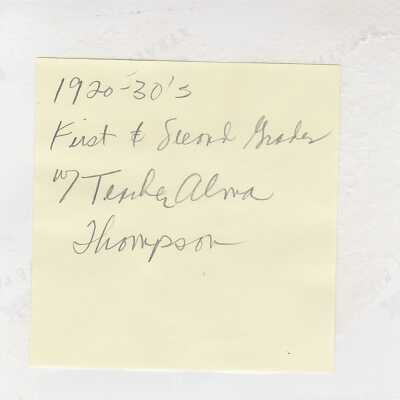 1920-30's
First & Second Grades
w/ Teacher Alma
Thompson